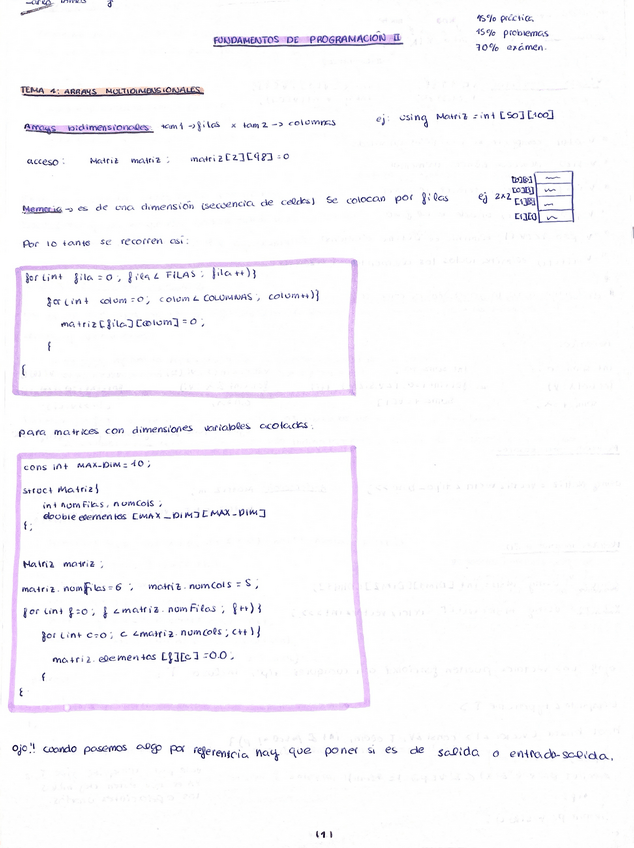 FUNDAMENTOS DE PROGRAMACIÓN II
15% práctica
15% problemas
70% exámen.
TEMA 1: ARRAYS MULTIDIMENSIONALES
Arrays bidimensionales tam1→filas x tam2→columnas ej: using Matriz = int [50][100]
acceso: Matriz matriz; matriz[2][48]=0
Memoria → es de una dimensión (secuencia de celdas) Se colocan por filas ej 2x2
[0][0]
[0][1]
[1][0]
[1][1]
Por lo tanto se recorren así:
for (int fila = 0; fila < FILAS; fila++)}
for (int colum = 0; colum < COLUMNAS; colum++)}
matriz[fila][colum] = 0;
{
{
para matrices con dimensiones variables acotadas.
cons int MAX_DIM = 10;
struct Matriz}
int numFilas, numCols;
double elementos [MAX_DIM][MAX_DIM]
{;
Matriz matriz;
matriz.numFilas = 6; matriz.numCols = 5;
for (int f=0; f < matriz.numFilas; f++)}
for (int c=0; c < matriz.numCols; c++)}
matriz.elementos [f][c] = 0.0;
{
{
ojo!! cuando pasemos algo por referencia hay que poner si es de salida o entrada-salida.
(1)